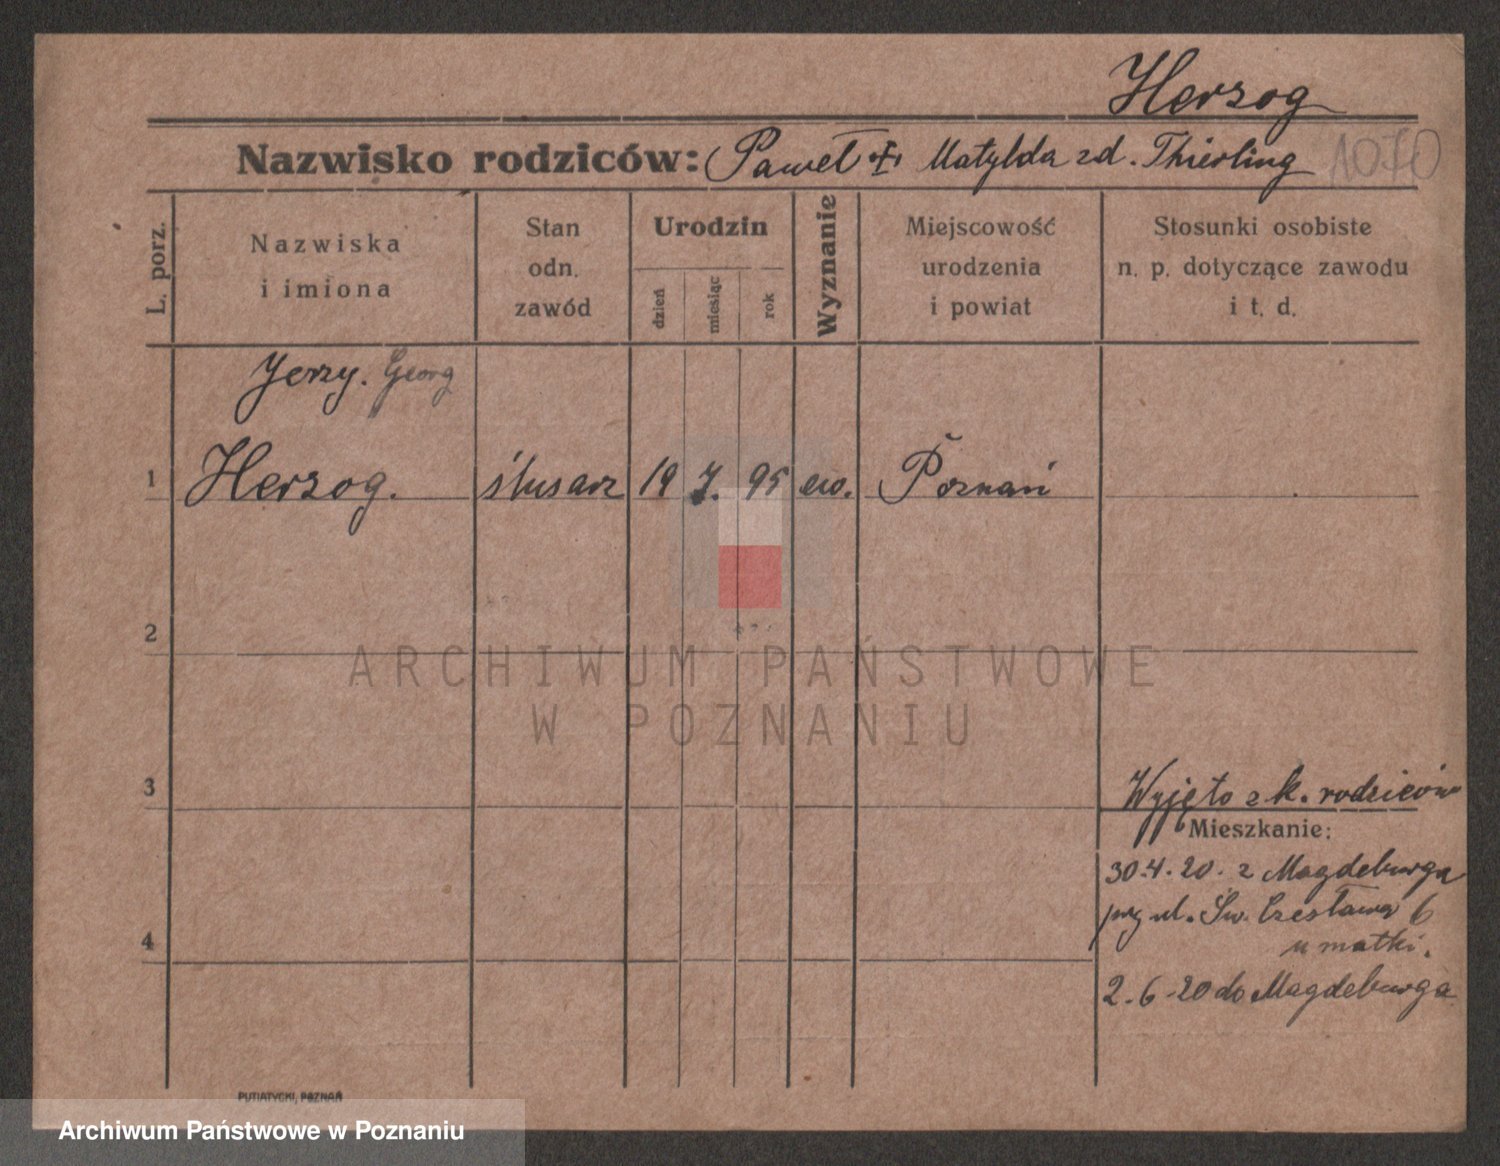 Herzog
Nazwisko rodziców: Paweł + Matylda zd. Thierling
1070
L. porz.
Nazwiska i imiona
Stan odn. zawód
Urodzin
dzień
miesiąc
rok
Wyznanie
Miejscowość urodzenia i powiat
Stosunki osobiste n. p. dotyczące zawodu i t. d.
Jerzy. Georg
1 Herzog. ślusarz 19 7. 95 ew. Poznań
2
3
Wyjęto z k. rodziców
Mieszkanie:
30.4.20. z Magdeburga
ul. Św. Czesława 6
u matki.
4
2.6.20 do Magdeburga
ARCHIWUM PAŃSTWOWE
W POZNANIU
PUTIATYCKI, POZNAŃ
Archiwum Państwowe w Poznaniu